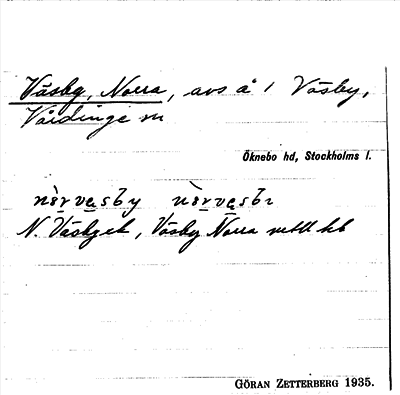 Väsby, Norra, avs å 1 Väsby,
Vårdinge sn
Öknebo hd, Stockholms l.
N. Väsbyet, Väsby Norra mtl kb
GÖRAN ZETTERBERG 1935.